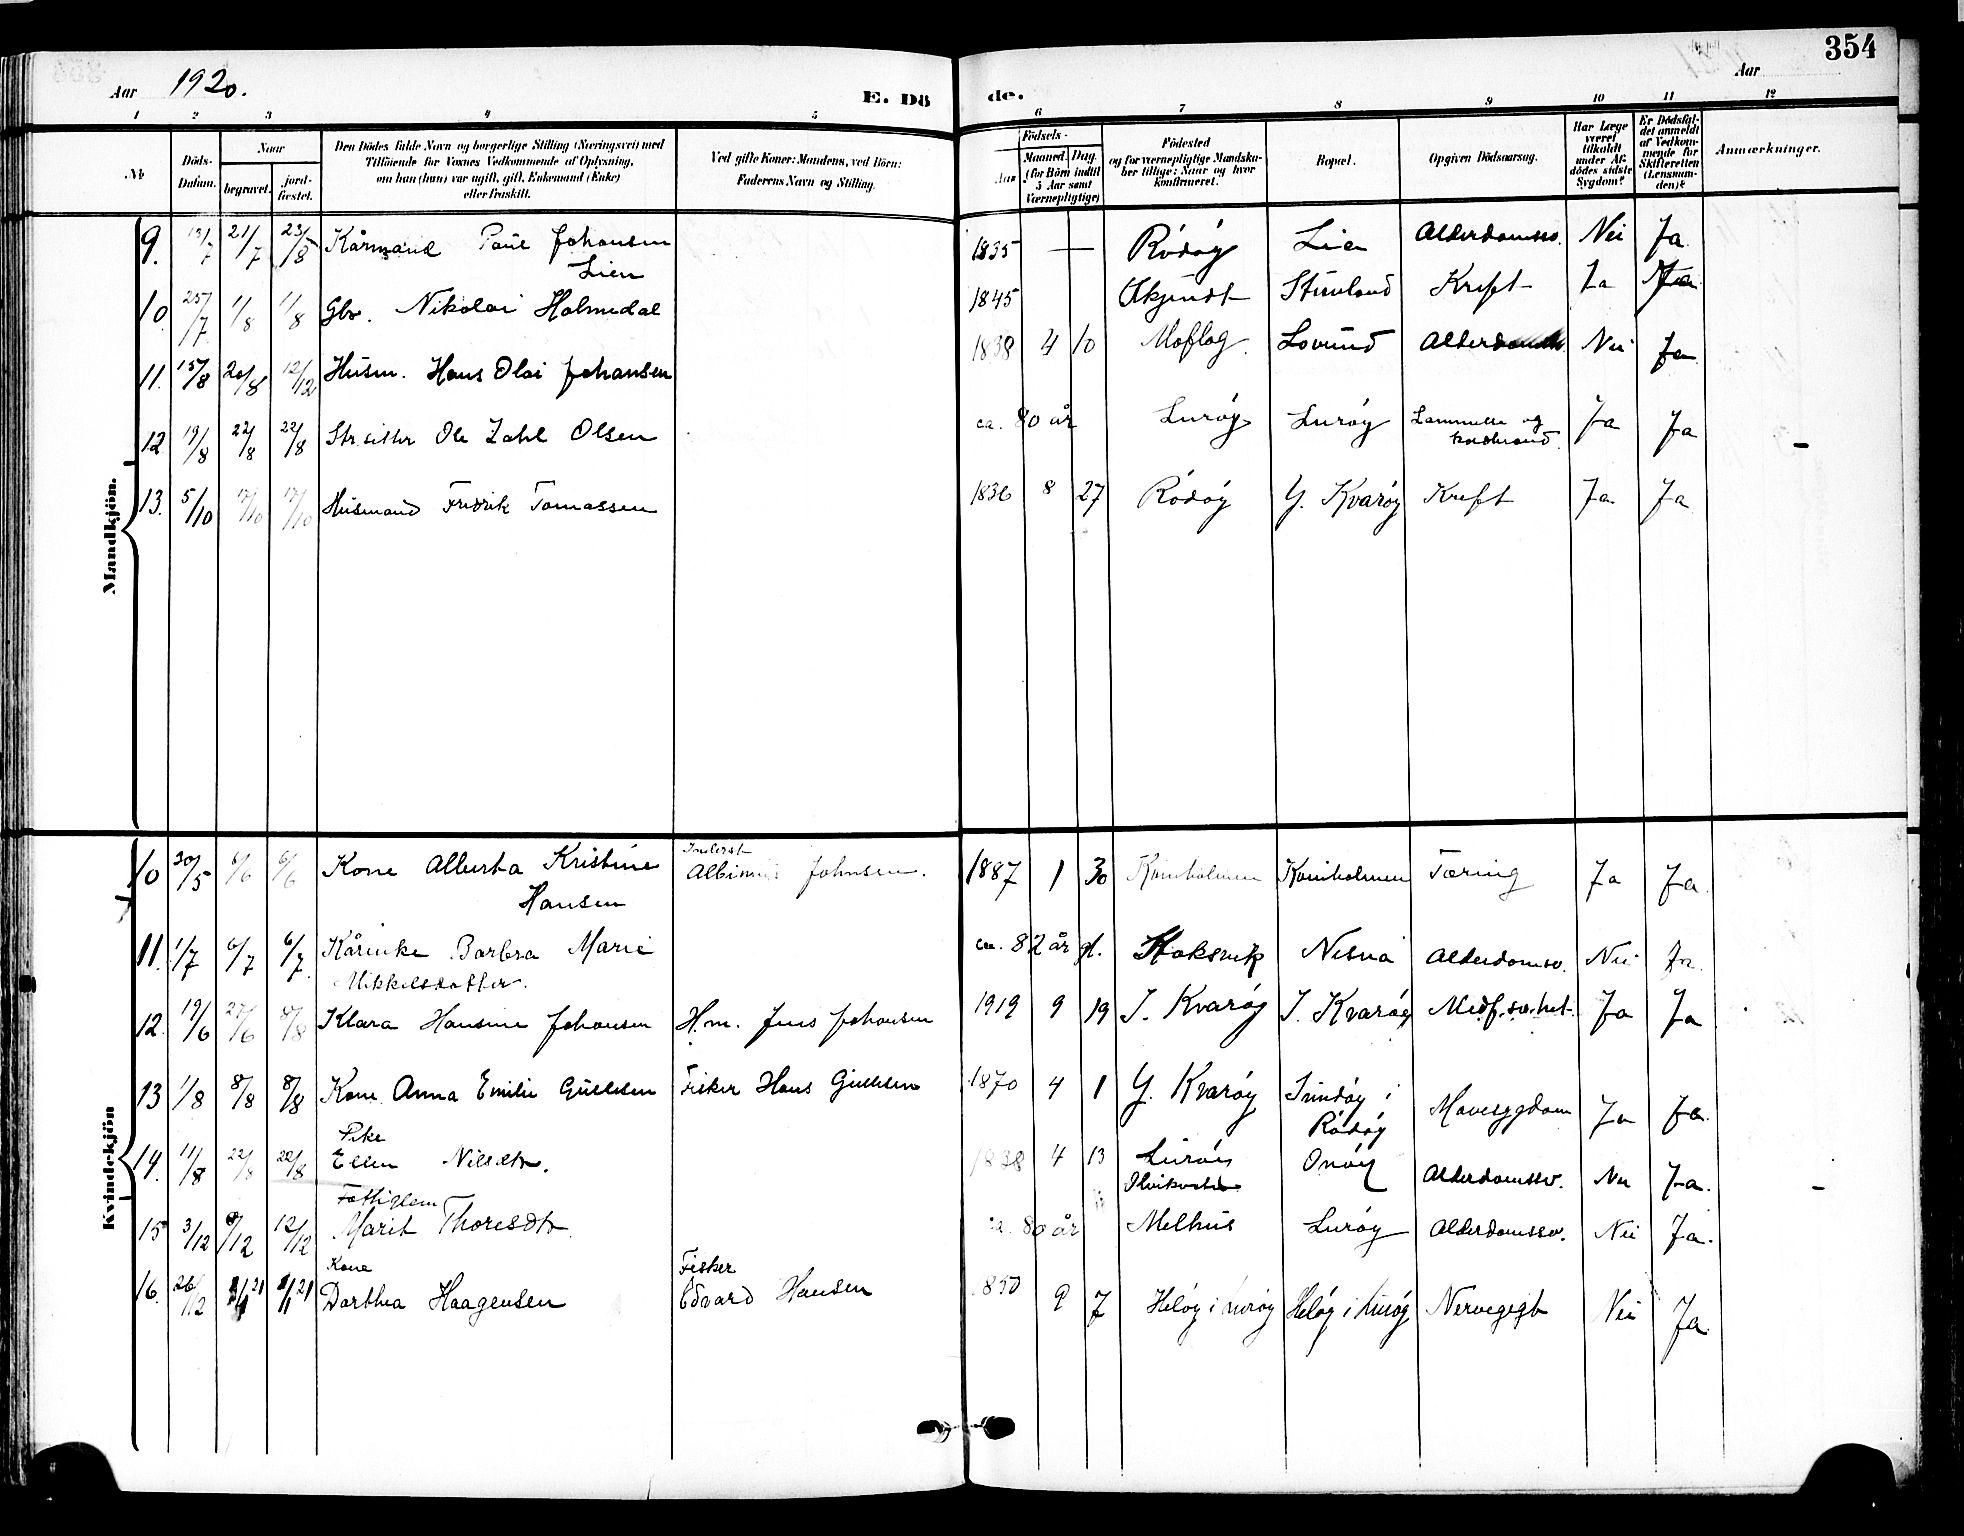 354
Aar 1920.
E. Dö
de.
Aar
1 2 3 4 5 6 7 8 9 10 11 12
No.
Döds-Datum.
Naar
begravet.
jord-fæstet.
Den Dödes fulde Navn og borgerlige Stilling (Næringsvei) med
Tilföiende for Voxnes Vedkommende af Oplysning,
om han (hun) var ugift, gift, Enkemand (Enke)
eller fraskilt.
Ved gifte Koner: Mandens, ved Börn:
Faderens Navn og Stilling.
Födsels-
Aar
Maaned. Dag.
(for Börn indtil
5 Aar samt
Værnepligtige)
Födested
og for værnepligtige Mandska-
ber tillige: Naar og hvor
konfirmeret.
Bopæl.
Opgiven Dödsaarsag.
Har Læge
været
tilkaldt
under Af-
dödes sidste
Sygdom?
Er Dödsfal-
det anmeldt
af Vedkom-
mende for
Skifteretten
(Lensman-
den)?
Anmærkninger.
Mandkjön.
9. 13/7 21/7 23/8 Kårmand Paul Johansen 1835 — Rödöy Lien Alderdomssv. Nei Ja
Lien
10 25/7 1/8 1/8 Gbr. Nikolai Holmedal 1845 Stuvland Kreft Ja Ja
11. 15/8 20/8 12/12 Husm. Hans Olai Johansen 1838 4 10 Moflag. Lovund Nei Ja
12 19/8 22/8 22/8 Str.sitter Ole Zahl Olsen ca. 80 år Luröy Luröy Lammelse og Ja Ja
koldbrand.
13. 5/10 17/10 17/10 Husmand Fredrik Tomassen 1836 8 27 Rödöy Y. Kvaröy Kreft Ja Ja
Kvindekjön
10 30/5 6/6 6/6 Kone Alberta Kristine Inderst 1887 1 30 Kvinholmen Kvinholmen Tæring Ja Ja.
Hansen Johnsen.
11. 1/7 6/7 6/7 Kårenke Barbra Marie ca. 82 år gl. Stoksvik Nesna Alderdomssv. Nei Ja.
Mikkelsdatter.
12. 19/6 27/6 8/8 Klara Hansine Johansen H.m. Jens Johansen 1919 9 19 I. Kvaröy I. Kvaröy Medf. sv.het. Ja Ja
13 1/8 8/8 8/8 Kone Anna Emilie Gullesen Fisker Hans Gullesen 1870 4 1 Y. Kvaröy Sundöy i Mavesygdom Ja Ja.
Rödöy
Pike
14. 11/8 22/8 22/8 Ellen Nilsdtr. 1838 4 13 Luröy Onöy Alderdomssv. Nei Ja.
Fattiglem
15 3/12 8/12 12/12 Marit Thoresdtr ca. 80 år Melhus Luröy Alderdomssv. Nei Ja.
Kone Fisker
16. 26/12 Dorthea Haagensen Edvard Hansen 1850 9 7 Helöy i Luröy Helöy i Luröy Nervegigt Nei Ja